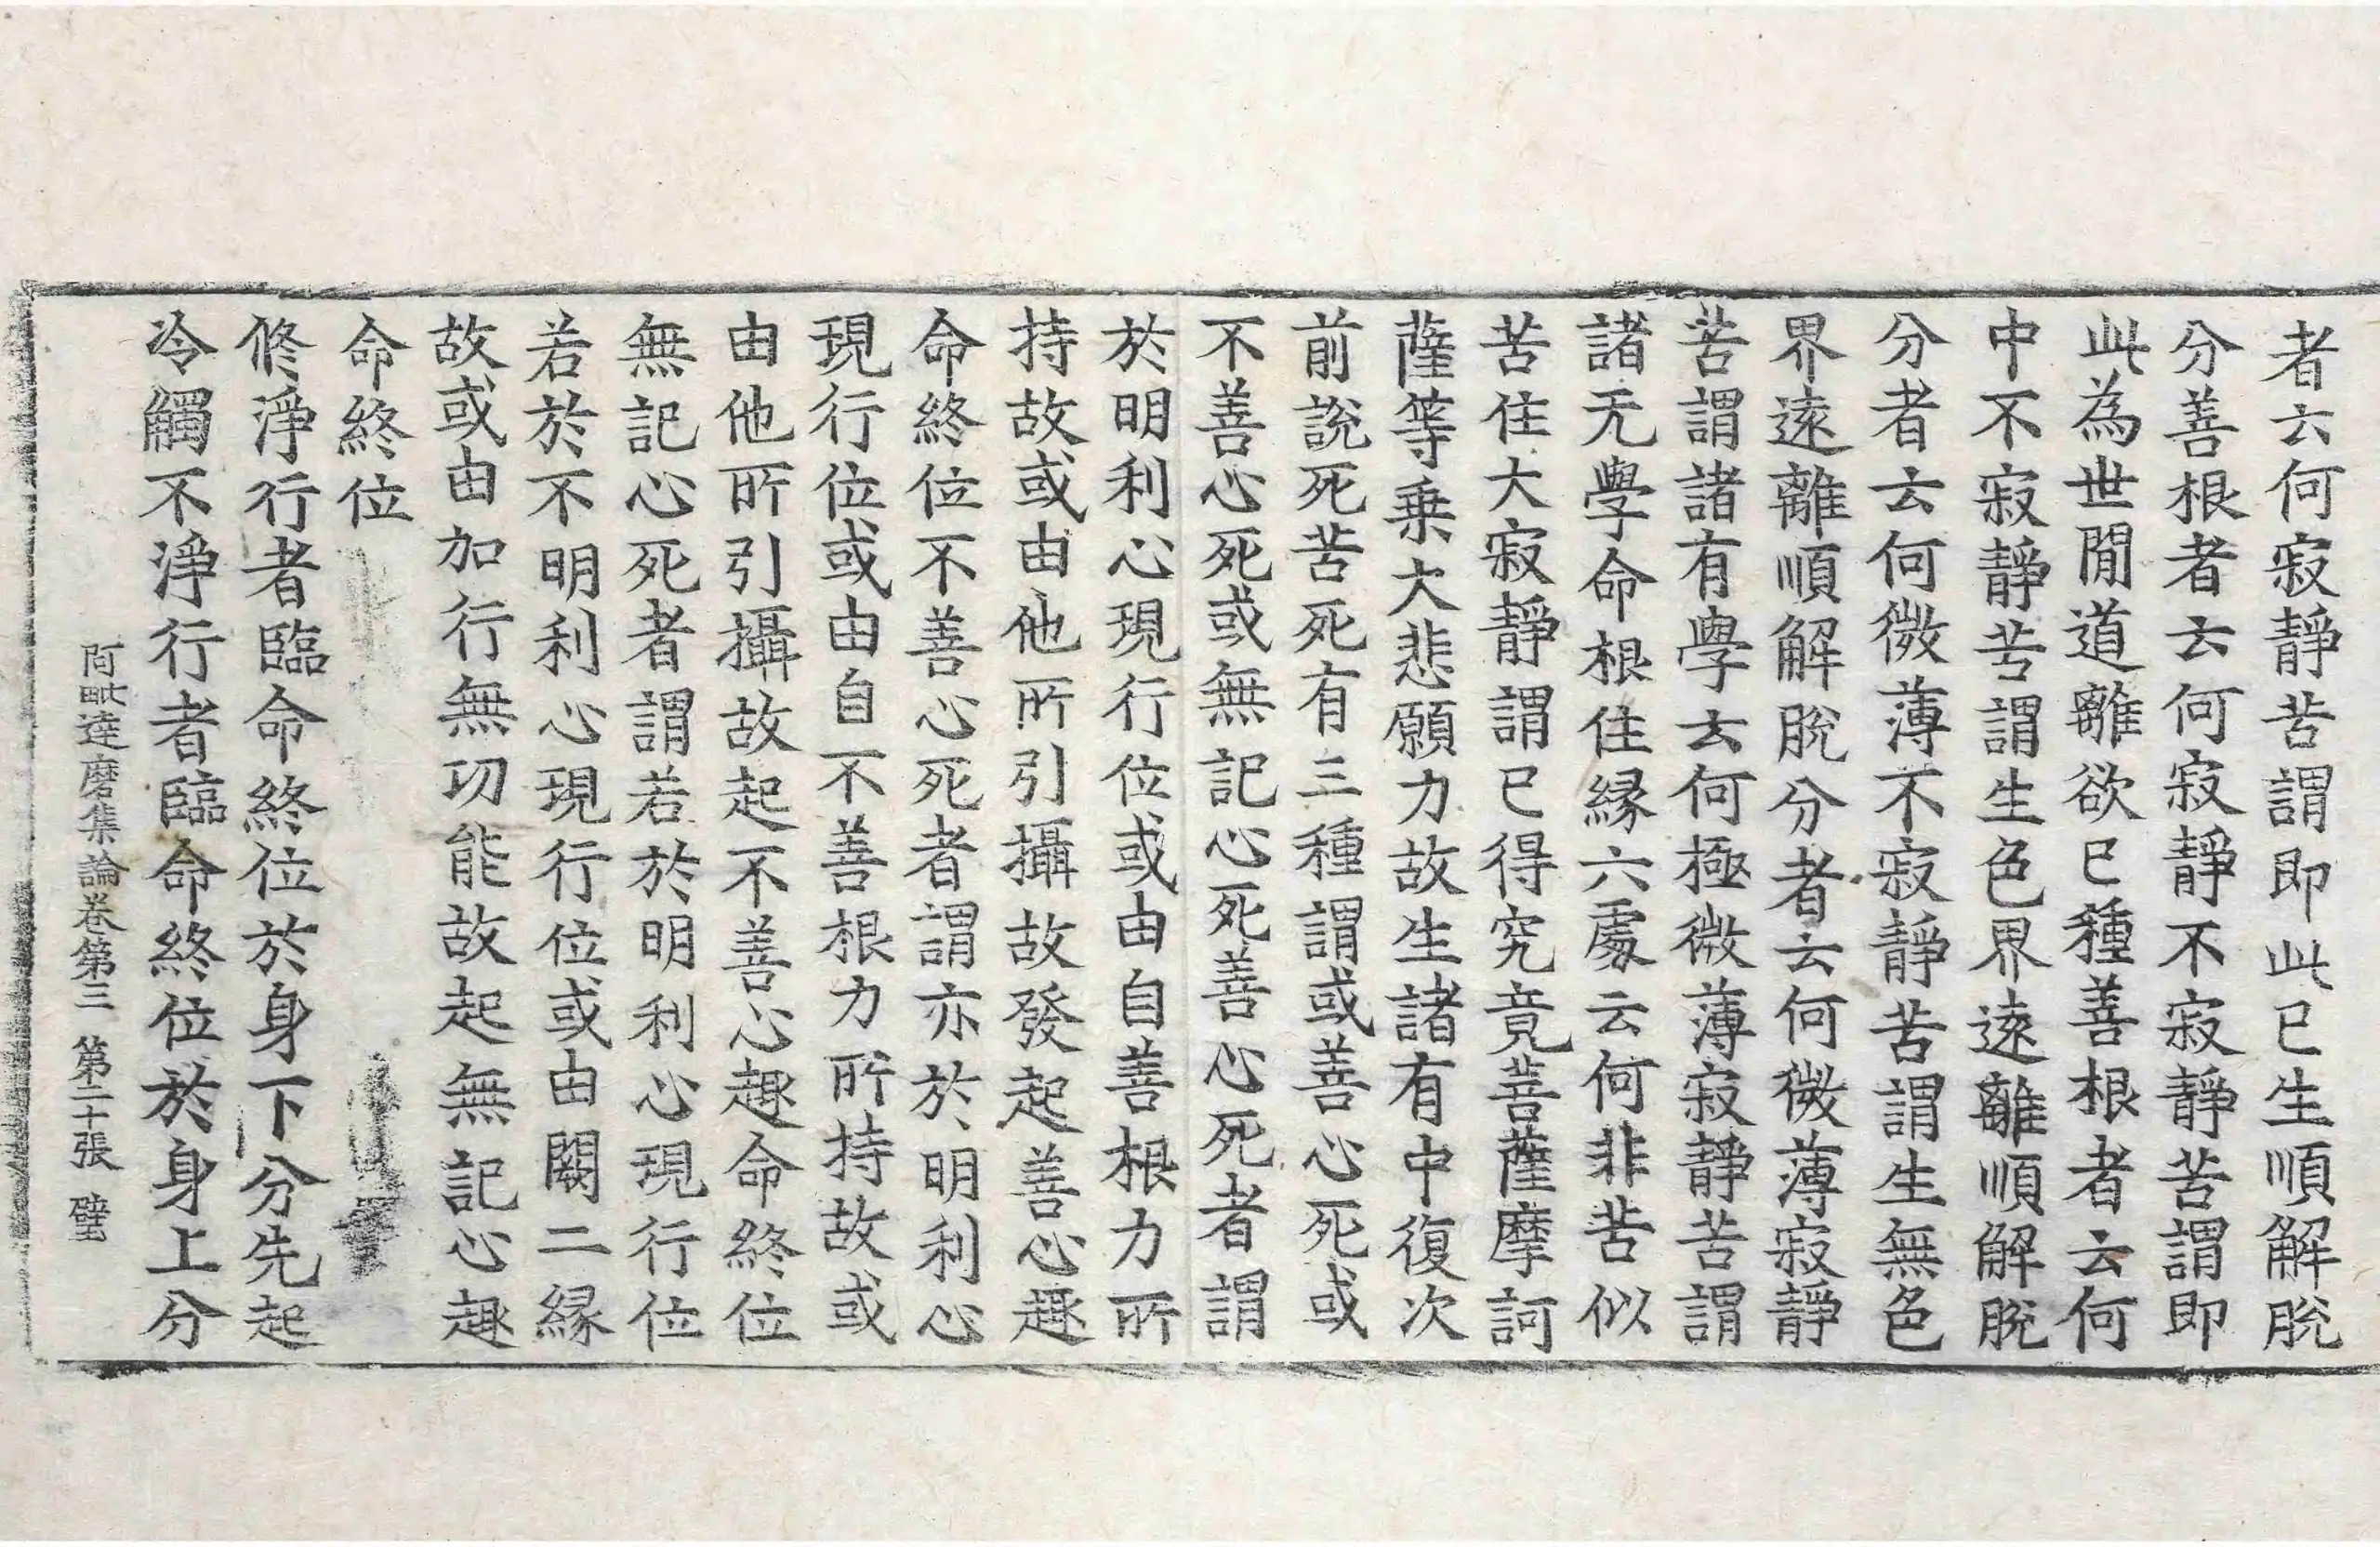 者云何寂靜苦謂即此已生順解脫
分善根者云何寂靜不寂靜苦謂即
此為世間道離欲已種善根者云何
中不寂靜苦謂生色界遠離順解脫
分者云何微薄不寂靜苦謂生無色
界遠離順解脫分者云何微薄寂靜
苦謂諸有學云何極微薄寂靜苦謂
諸无學命根住緣六處云何非苦似
苦住大寂靜謂已得究竟菩薩摩訶
薩等乗大悲願力故生諸有中復次
前說死苦死有三種謂或善心死或
不善心死或無記心死善心死者謂
於明利心現行位或由自善根力所
持故或由他所引攝故發起善心趣
命終位不善心死者謂亦於明利心
現行位或由自不善根力所持故或
由他所引攝故起不善心趣命終位
無記心死者謂若於明利心現行位
若於不明利心現行位或由闕二緣
故或由加行無功能故起無記心趣
命終位
修淨行者臨命終位於身下分先起
冷觸不淨行者臨命終位於身上分
阿毗達磨集論卷第三 第二十張 璧